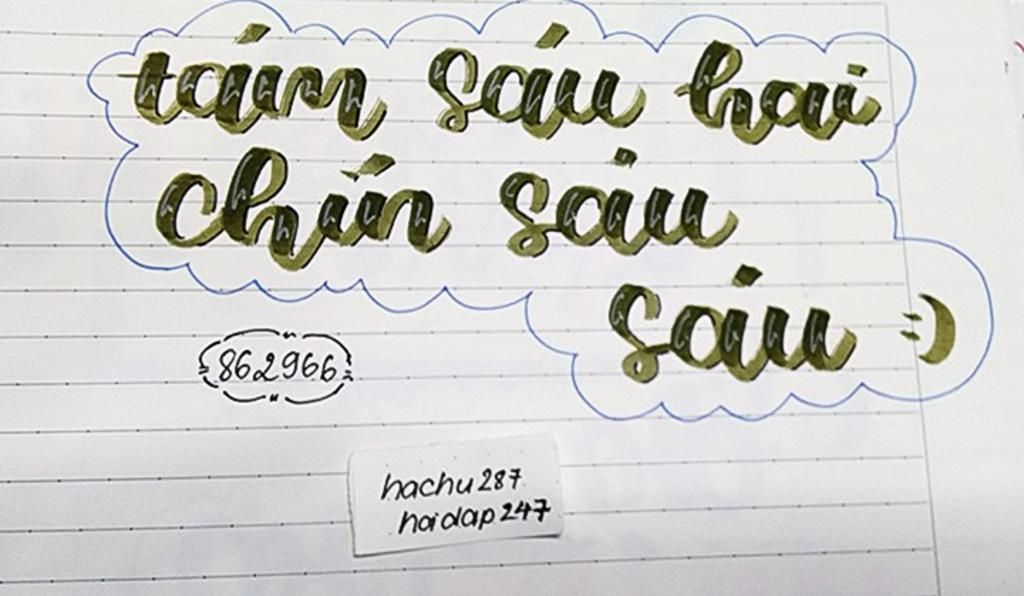 tám sáu hai
chín sáu
sáu =)
862966
hachu287
hoidap247